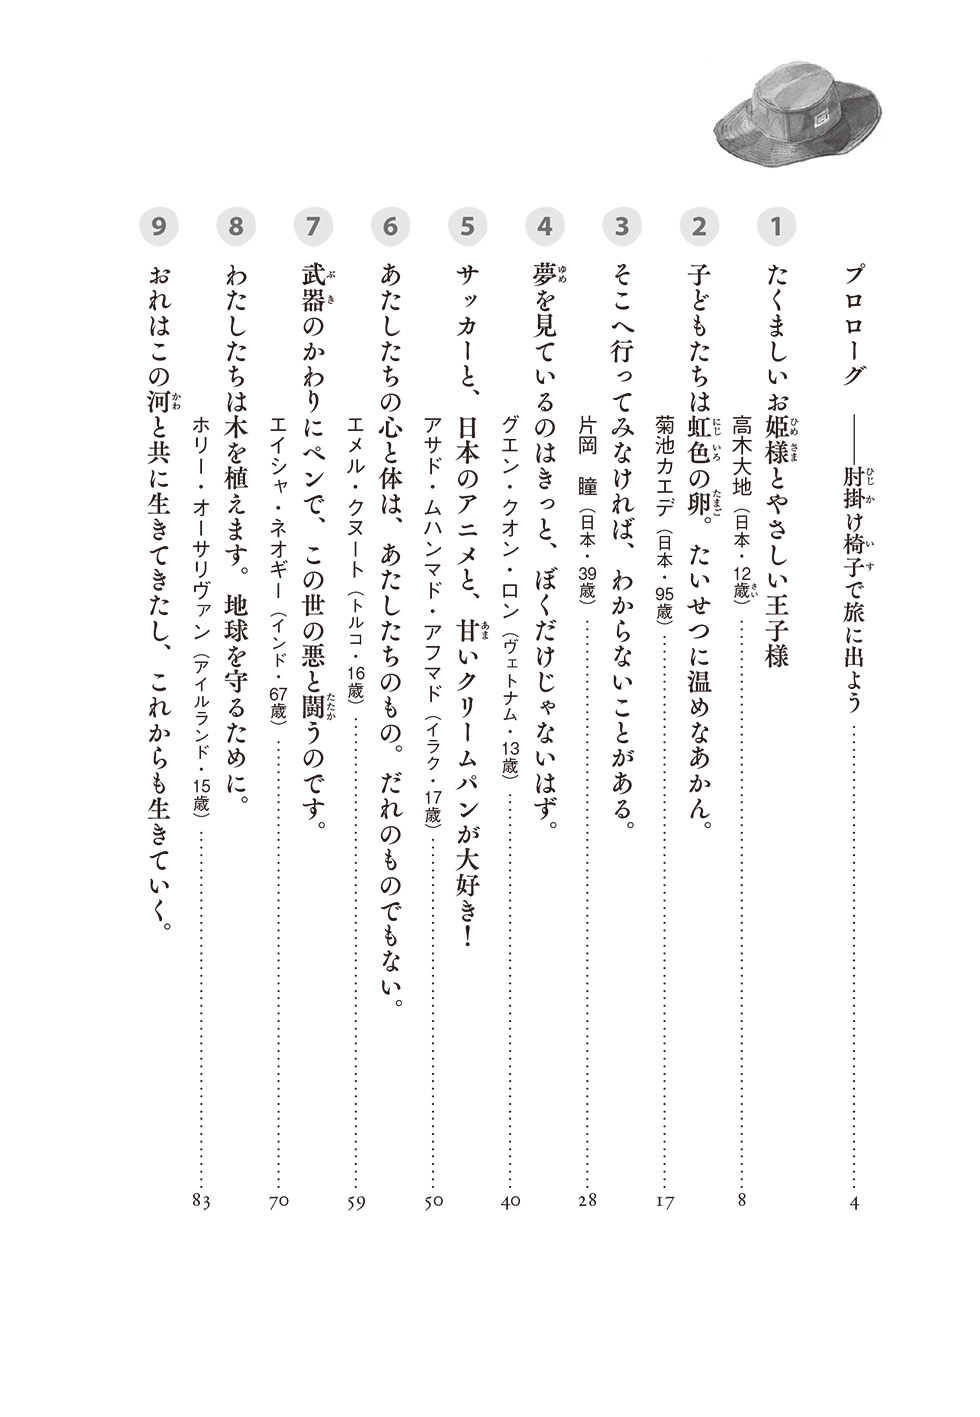 プロローグ ――肘掛け椅子で旅に出よう……………4
1 たくましいお姫様とやさしい王子様
高木大地（日本・12歳）……………8
2 子どもたちは虹色の卵。たいせつに温めなあかん。
菊池カエデ（日本・95歳）……………17
3 そこへ行ってみなければ、わからないことがある。
片岡 瞳（日本・39歳）……………28
4 夢を見ているのはきっと、ぼくだけじゃないはず。
グエン・クオン・ロン（ヴェトナム・13歳）……………40
5 サッカーと、日本のアニメと、甘いクリームパンが大好き！
アサド・ムハンマド・アフマド（イラク・17歳）……………50
6 あたしたちの心と体は、あたしたちのもの。だれのものでもない。
エメル・クヌート（トルコ・16歳）……………59
7 武器のかわりにペンで、この世の悪と闘うのです。
エイシャ・ネオギー（インド・67歳）……………70
8 わたしたちは木を植えます。地球を守るために。
ホリー・オーサリヴァン（アイルランド・15歳）……………83
9 おれはこの河と共に生きてきたし、これからも生きていく。